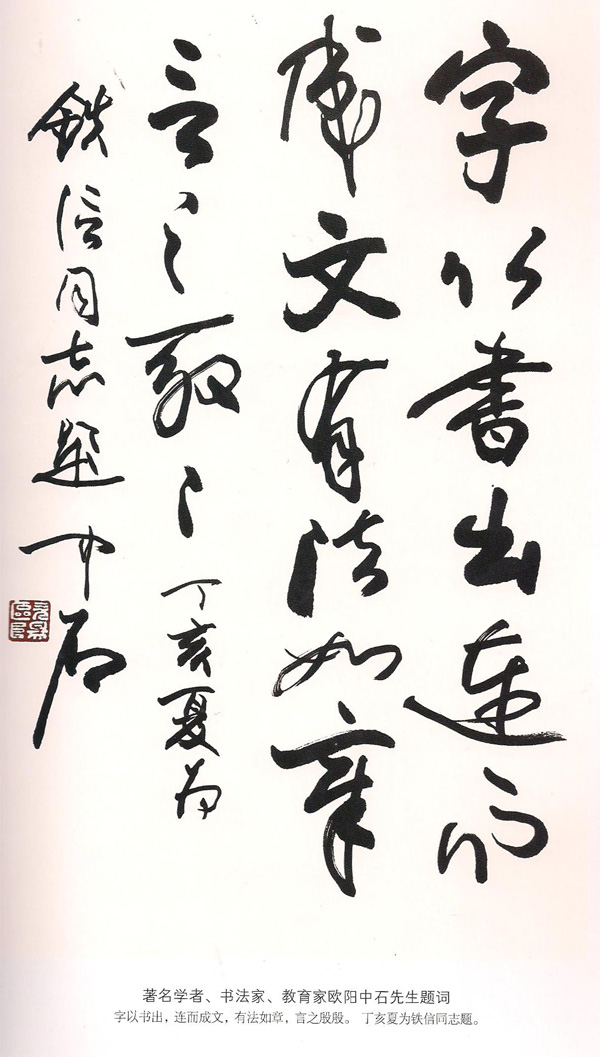 字以書出連而
成文有法如章
言之殷〻 丁亥夏为
鉄信同志题 中石
著名学者、书法家、教育家欧阳中石先生题词
字以书出，连而成文，有法如章，言之殷殷。丁亥夏为铁信同志题。